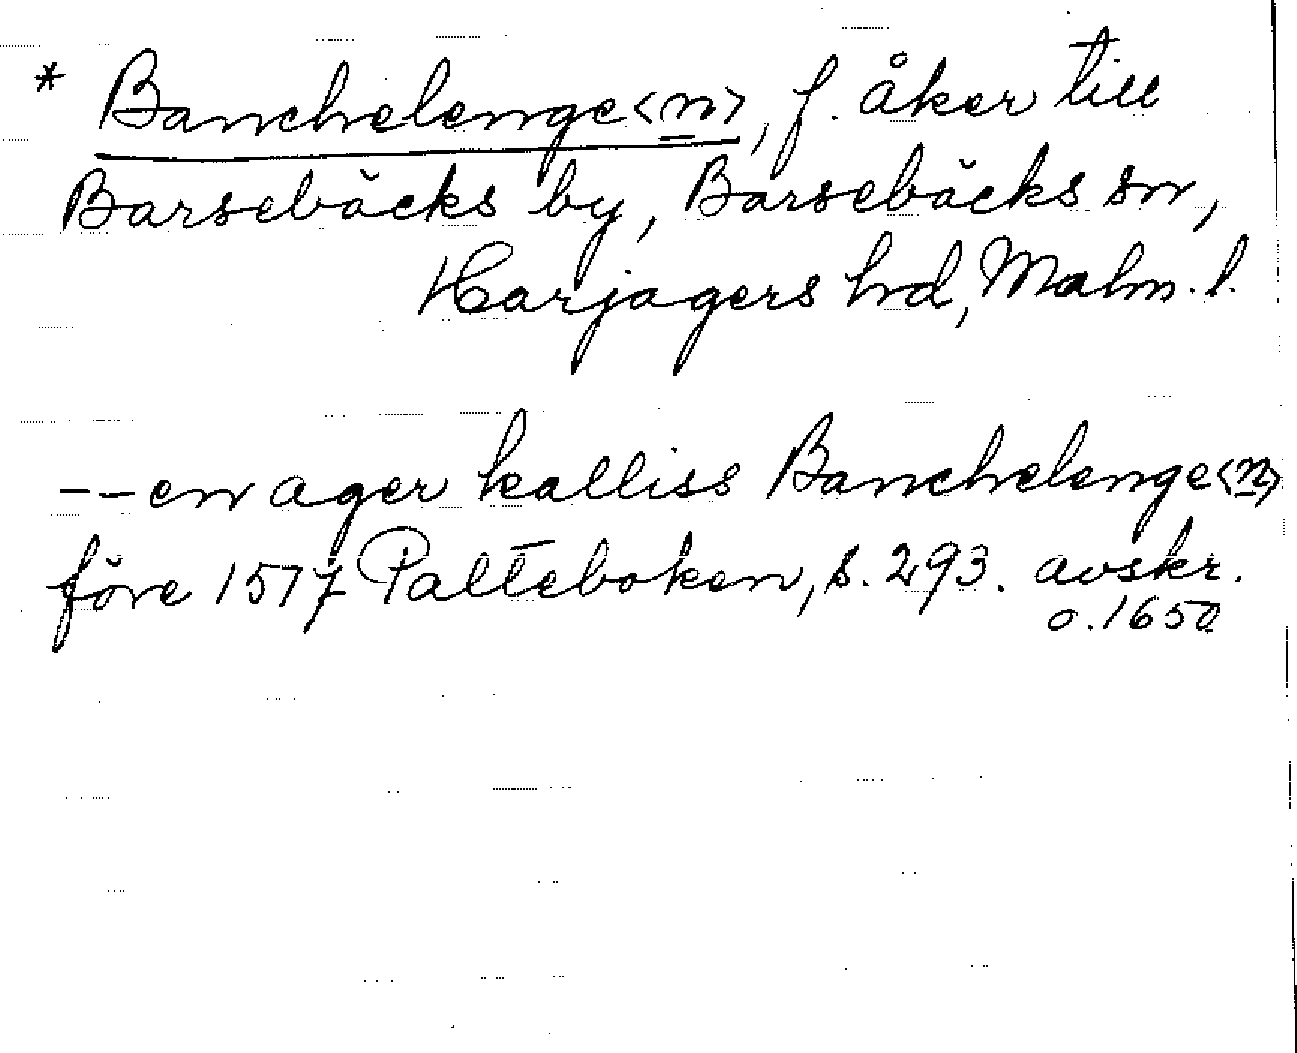 * Banchelenge<n>, f. åker till
Barsebäcks by, Barsebäcks sn,
Harjagers hd, Malm. l.
-- en ager kalliss Banchelenge<n>
före 1577 Palteboken, s. 293. avskr.
o. 1650